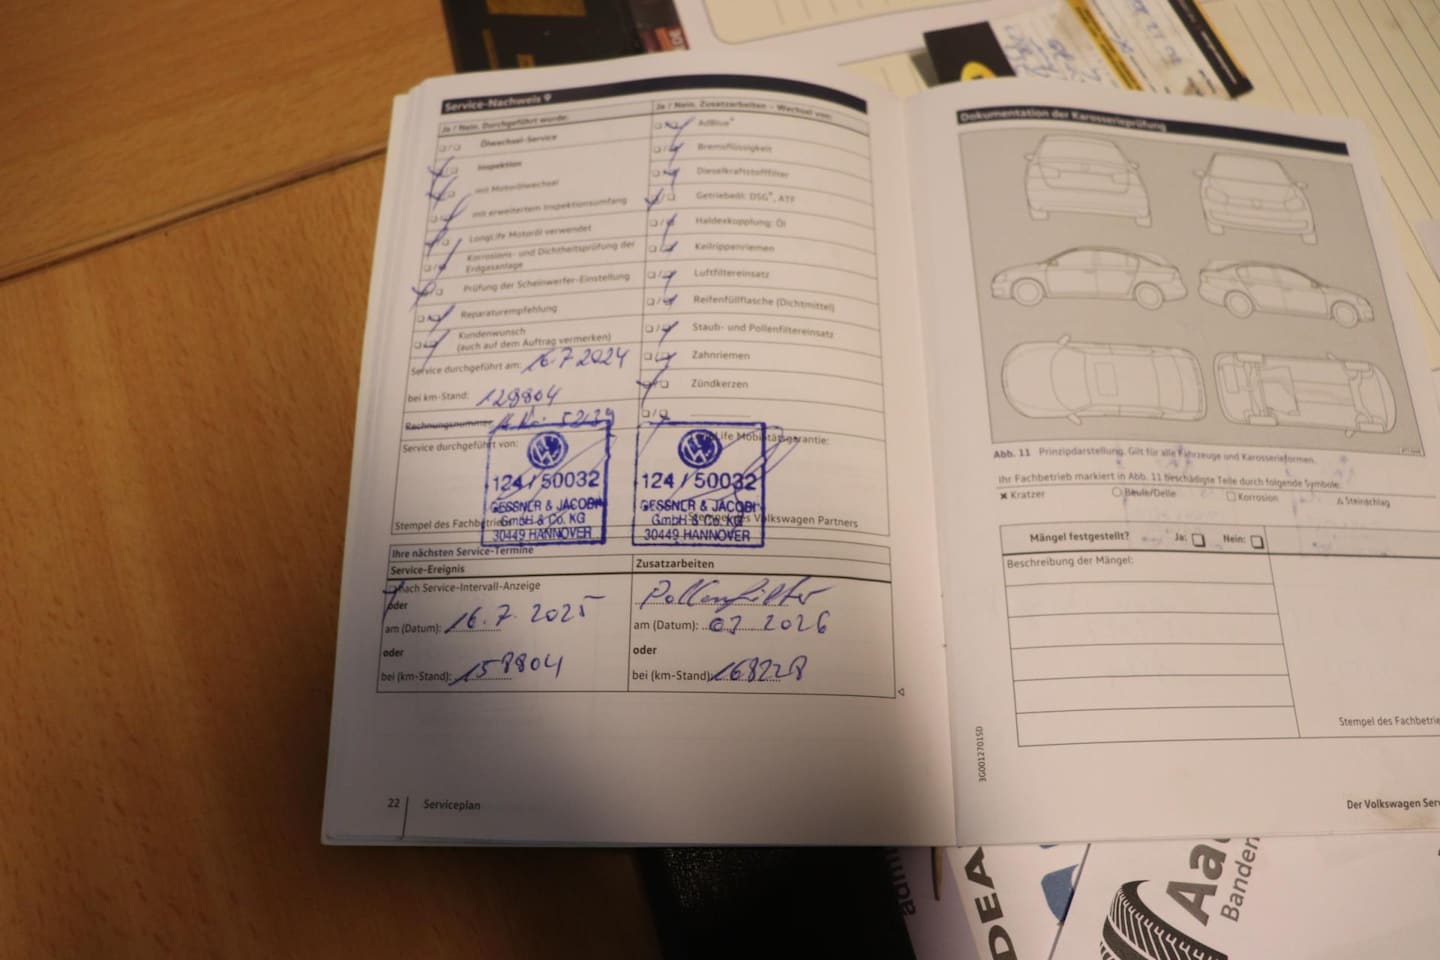 Service-Nachweis 9
Ja / Nein. Durchgeführt wurde:
□/□ Ölwechsel-Service
Inspektion
mit Motorölwechsel
mit erweitertem Inspektionsumfang
LongLife Motoröl verwendet
Korrosions- und Dichtheitsprüfung der
Erdgasanlage
Prüfung der Scheinwerfer-Einstellung
Reparaturempfehlung
Kundenwunsch
(auch auf dem Auftrag vermerken)
Service durchgeführt am: 16.7.2024
bei km-Stand: 128804
Rechnungsnummer
Service durchgeführt von:
124/50032
GESSNER & JACOBI
GmbH & Co. KG
30449 HANNOVER
Stempel des Fachbetriebs
Ja / Nein. Zusatzarbeiten – Wechsel von:
AdBlue®
Bremsflüssigkeit
Dieselkraftstofffilter
Getriebeöl: DSG®, ATF
Haldexkupplung: Öl
Keilrippenriemen
Luftfiltereinsatz
Reifenfüllflasche (Dichtmittel)
Staub- und Pollenfiltereinsatz
Zahnriemen
Zündkerzen
□/□
Life Mobilitätsgarantie:
124/50032
GESSNER & JACOBI
GmbH & Co. KG
30449 HANNOVER
Stempel des Volkswagen Partners
Ihre nächsten Service-Termine
Service-Ereignis
nach Service-Intervall-Anzeige
oder
am (Datum): 16.7.2025
oder
bei (km-Stand): 158804
Zusatzarbeiten
Pollenfilter
am (Datum): 03 2026
oder
bei (km-Stand): 168228
22 Serviceplan
Dokumentation der Karosserieprüfung
Abb. 11 Prinzipdarstellung. Gilt für alle Fahrzeuge und Karosserieformen.
Ihr Fachbetrieb markiert in Abb. 11 beschädigte Teile durch folgende Symbole:
× Kratzer ○ Beule/Delle □ Korrosion △ Steinschlag
Mängel festgestellt? Ja: □ Nein: □
Beschreibung der Mängel:
Stempel des Fachbetrie
3G0012701SD
Der Volkswagen Serv
DEA
Aa
Banden